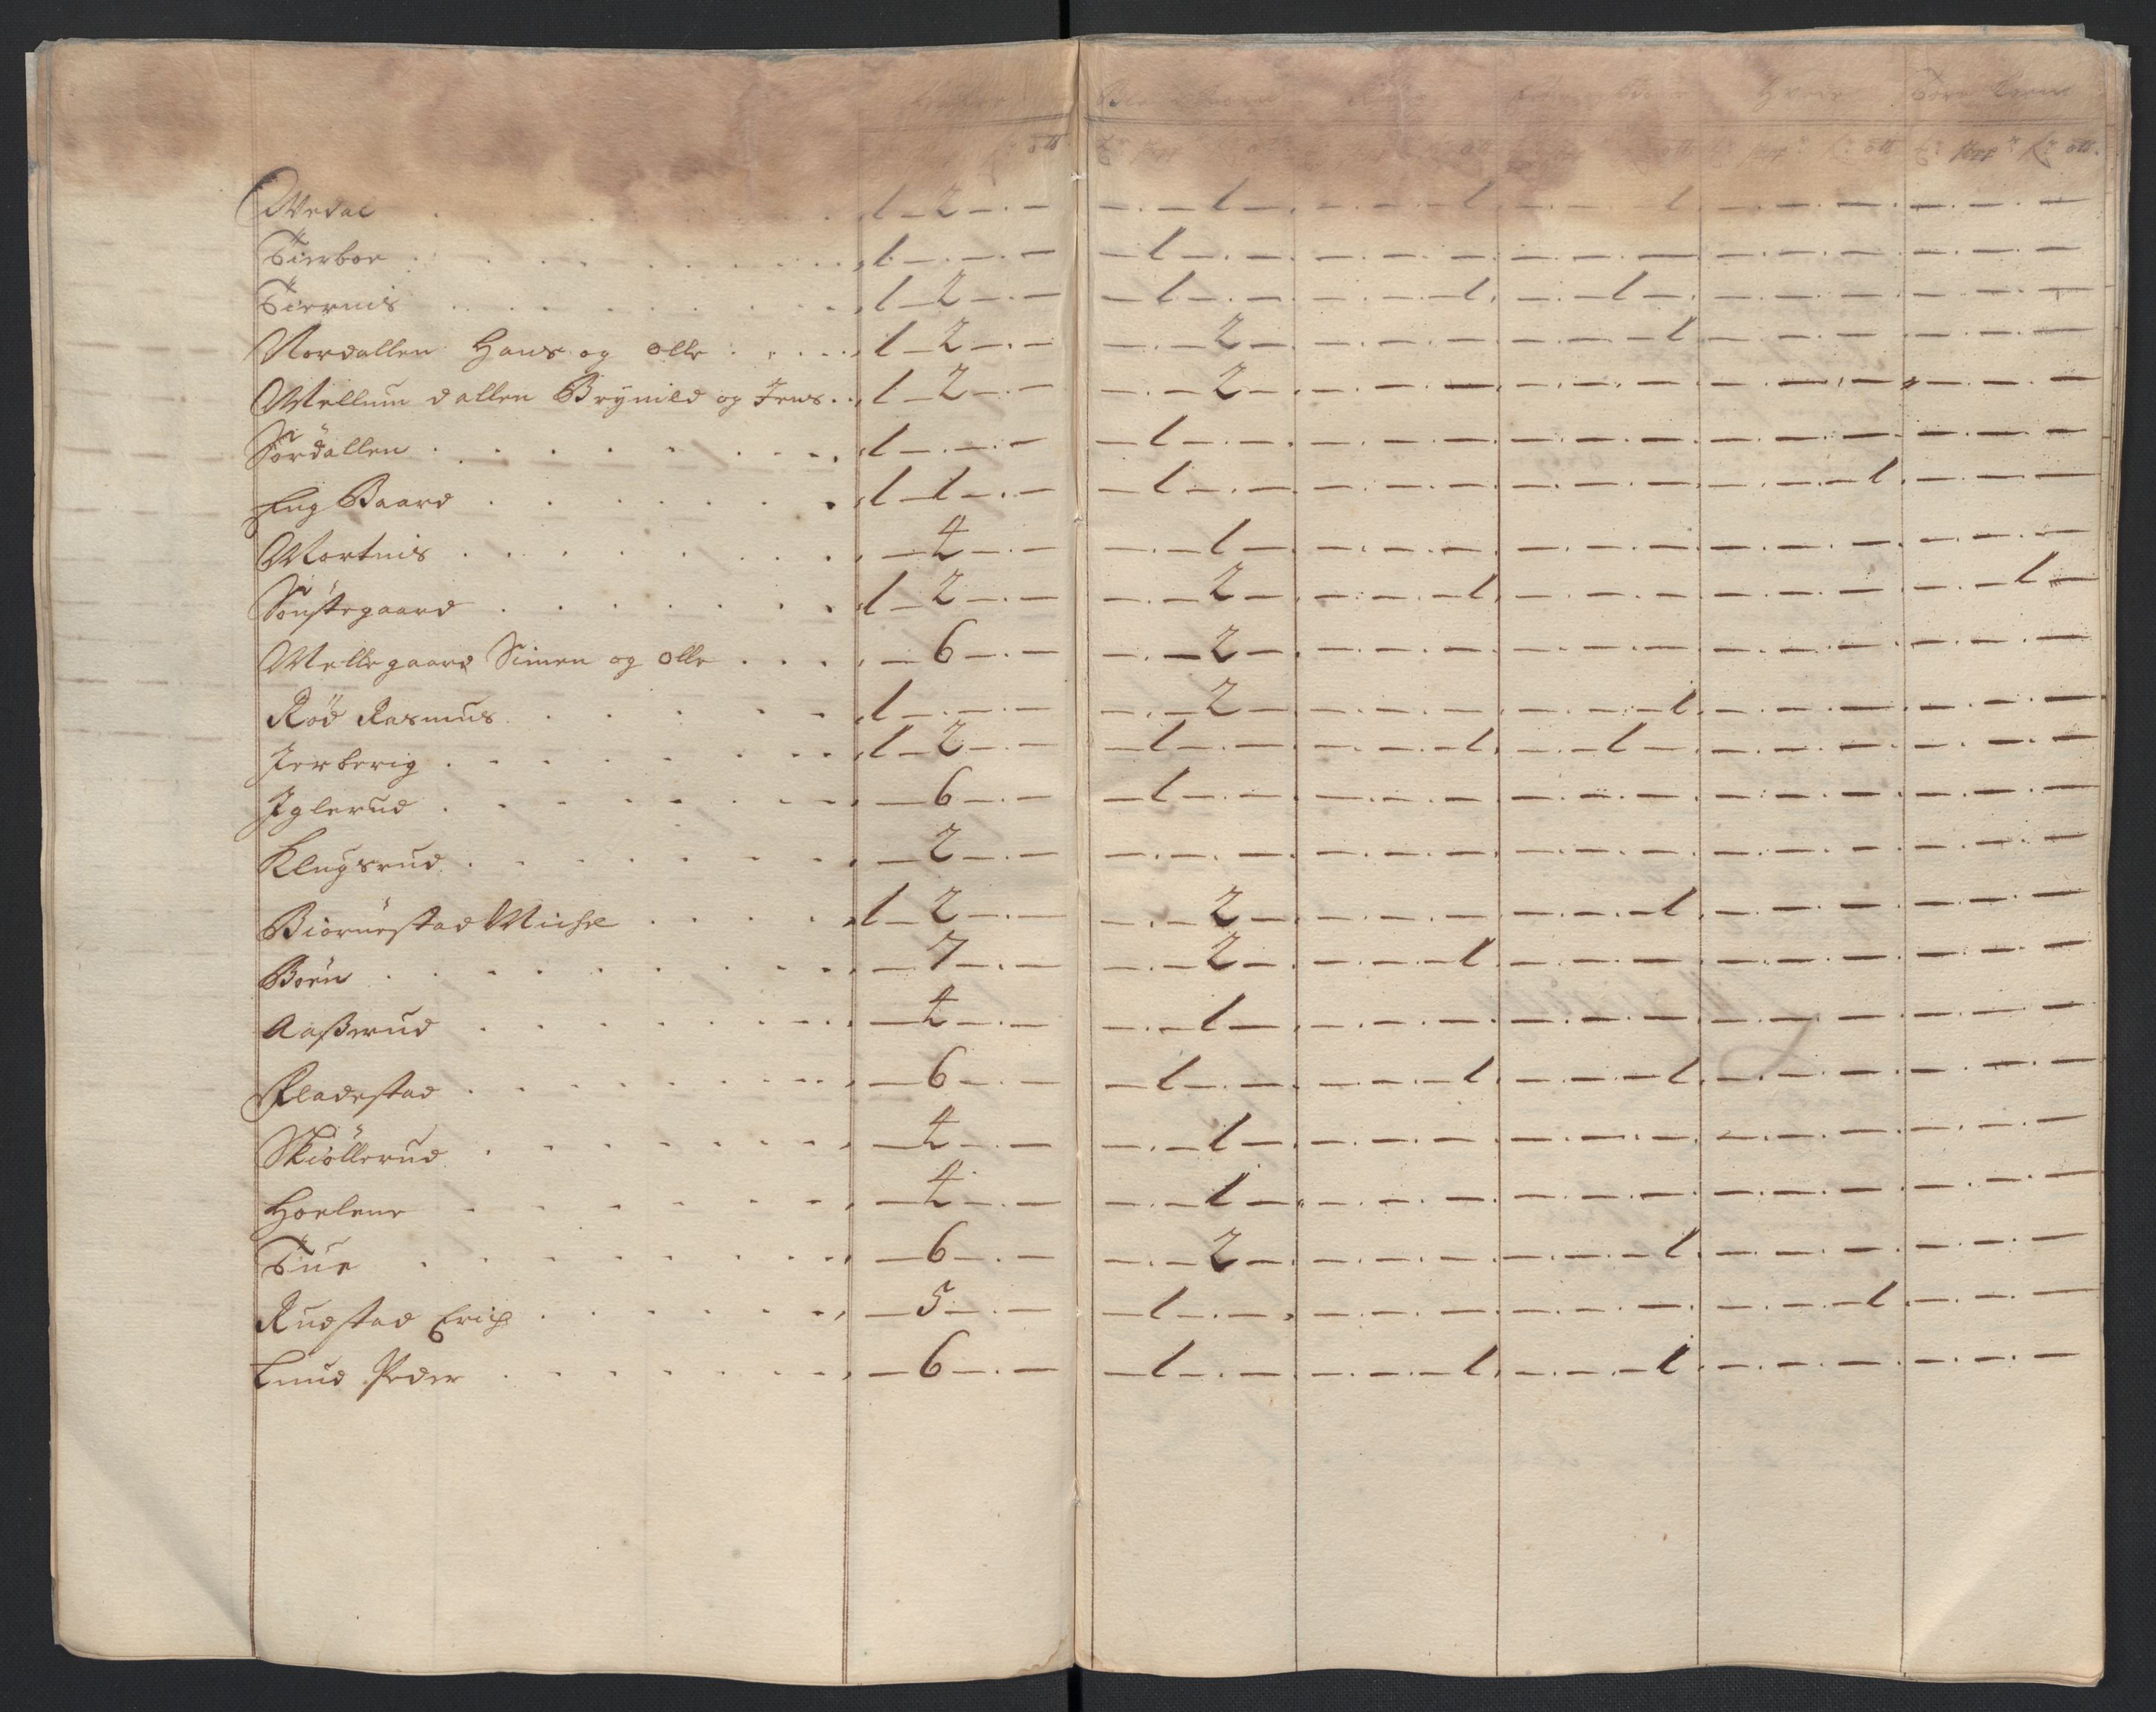 Hvede Bord Korn
Medal 1 – 2 – . – – . – 1 – – . – . – 1 – . – . – 1 – . – . – . – – . – . – . –
Tierboe 1 – . – . – – 1 – . – – . – . – . – – . – . – . – – . – . – . – – . – . – . –
Tiernis 1 – 2 – . – – 1 – . – – . – . – 1 – . – 1 – – . – . – . – – . – . – . –
Nordallen Hans og Olle 1 – 2 – . – – . – 2 – – . – . – . – – . – . – 1 – . – . – . – – . – . – . –
Mellum dallen Brynild og Jens 1 – 2 – . – – . – 2 – – . – . – . – – . – . – . – – . – . – . – – . – . – . –
Sördallen 1 – . – . – – 1 – . – – . – . – . – – . – . – . – – . – . – . – – . – . – . –
Eng Baard 1 – 1 – . – – 1 – . – – . – . – . – – . – . – . – – . – . – 1 – . – . – . –
Mortnis – 4 – . – – . – 1 – – . – . – . – – . – . – . – – . – . – . – – . – . – . –
Sönstegaard 1 – 2 – . – – . – 2 – – . – . – 1 – . – . – . – – . – . – . – – . – 1 –
Mellegaard Simen og Olle – 6 – . – – . – 2 – – . – . – . – – . – . – . – – . – . – . – – . – . – . –
Röd Rasmus 1 – . – . – – . – 2 – – . – . – . – – . – . – 1 – . – . – . – – . – . – . –
Jerberig 1 – 2 – . – – 1 – . – – . – . – 1 – . – 1 – – . – . – . – – . – . – . –
Iglerud – 6 – . – – 1 – . – – . – . – . – – . – . – . – – . – . – . – – . – . – . –
Klugsrud – 2 – . – – . – . – . – – . – . – . – – . – . – . – – . – . – . – – . – . – . –
Biörnestad Michel 1 – 2 – . – – . – 2 – – . – . – . – – . – . – 1 – . – . – . – – . – . – . –
Boen – 7 – . – – . – 2 – – . – . – 1 – . – . – . – – . – . – . – – . – . – . –
Aaßerud – 4 – . – – . – 1 – – . – . – . – – . – . – . – – . – . – . – – . – . – . –
Fladestad – 6 – . – – 1 – . – – . – . – 1 – . – . – 1 – . – . – . – – . – . – . –
Skiöllerud – 4 – . – – . – 1 – – . – . – . – – . – . – . – – . – . – . – – . – . – . –
Hoelene – 4 – . – – . – 1 – – . – . – . – – . – . – . – – . – . – . – – . – . – . –
Tue – 6 – . – – . – 2 – – . – . – . – – . – . – 1 – . – . – . – – . – . – . –
Rudstad Erich – 5 – . – – 1 – . – – . – . – . – – . – . – . – – . – . – 1 – . – . – . –
Lund Peder – 6 – . – – 1 – . – – . – . – 1 – . – . – 1 – . – . – . – – . – . – . –